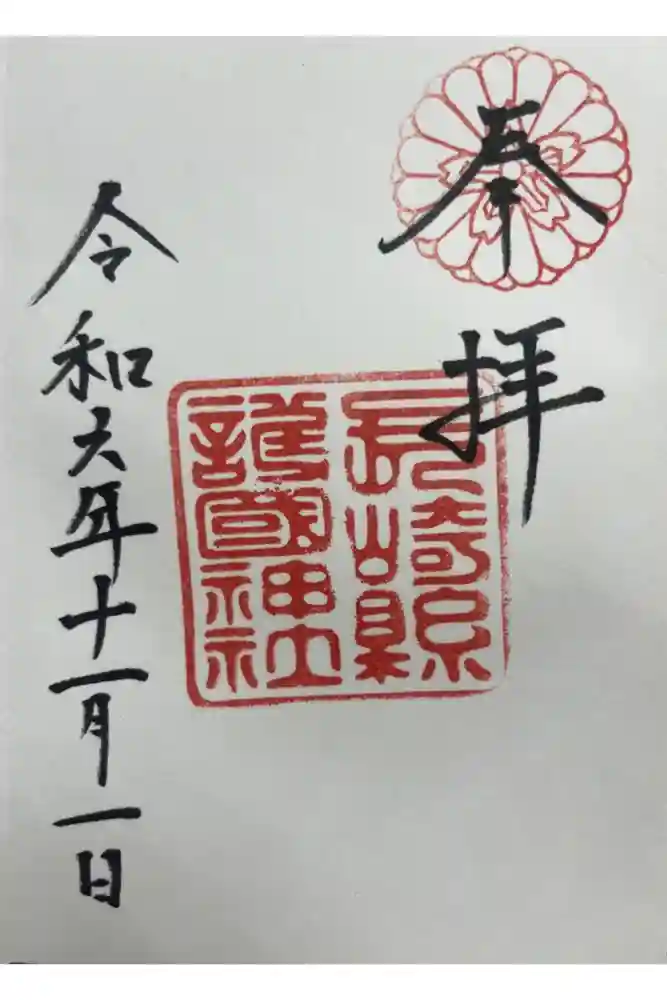 奉拝
長崎縣
護國神社
令和六年十一月一日